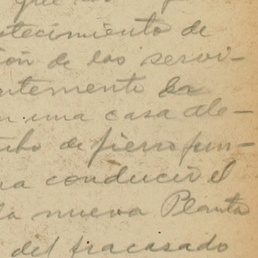 que
stecimiento de
ón de los servi-
ntemente la
n una casa ale-
ubo de fierro fun-
ra conducir el
la nueva Planta
del fracasado